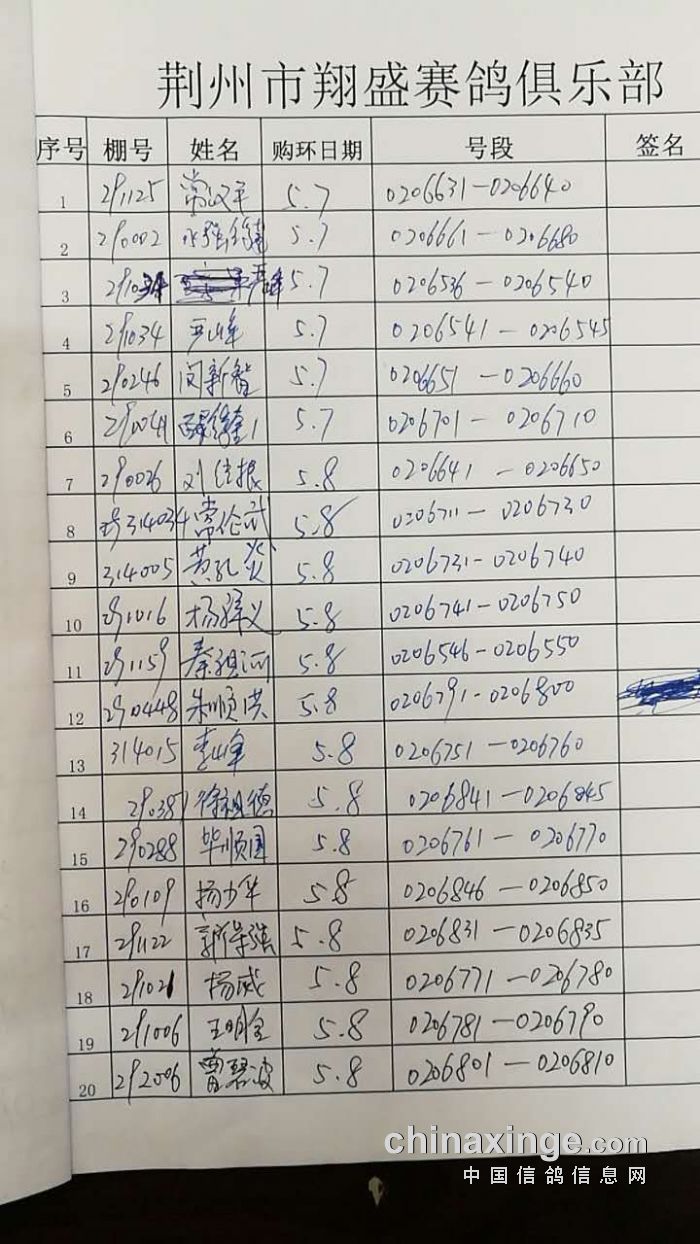 荆州市翔盛赛鸽俱乐部
序号 棚号 姓名 购环日期 号段 签名
1 291125 常汉平 5.7 0206631-0206640
2 290002 5.7 0206661-0206680
3 5.7 0206536-0206540
4 291034 严峰 5.7 0206541-0206545
5 290246 闵新智 5.7 0206651-0206660
6 5.7 0206701-0206710
7 290026 刘传振 5.8 0206641-0206650
8 314034 常伦武 5.8 0206711-0206730
9 314005 黄孔炎 5.8 0206731-0206740
10 291016 杨辉义 5.8 0206741-0206750
11 291159 秦祖河 5.8 0206546-0206550
12 290448 朱顺洪 5.8 0206791-0206800
13 314015 李峰 5.8 0206751-0206760
14 290387 徐祖德 5.8 0206841-0206845
15 290288 毕顺国 5.8 0206761-0206770
16 290109 杨少华 5.8 0206846-0206850
17 291122 5.8 0206831-0206835
18 291021 杨威 5.8 0206771-0206780
19 291006 王明全 5.8 0206781-0206790
20 292006 曹碧波 5.8 0206801-0206810
chinaxinge.com
中国信鸽信息网